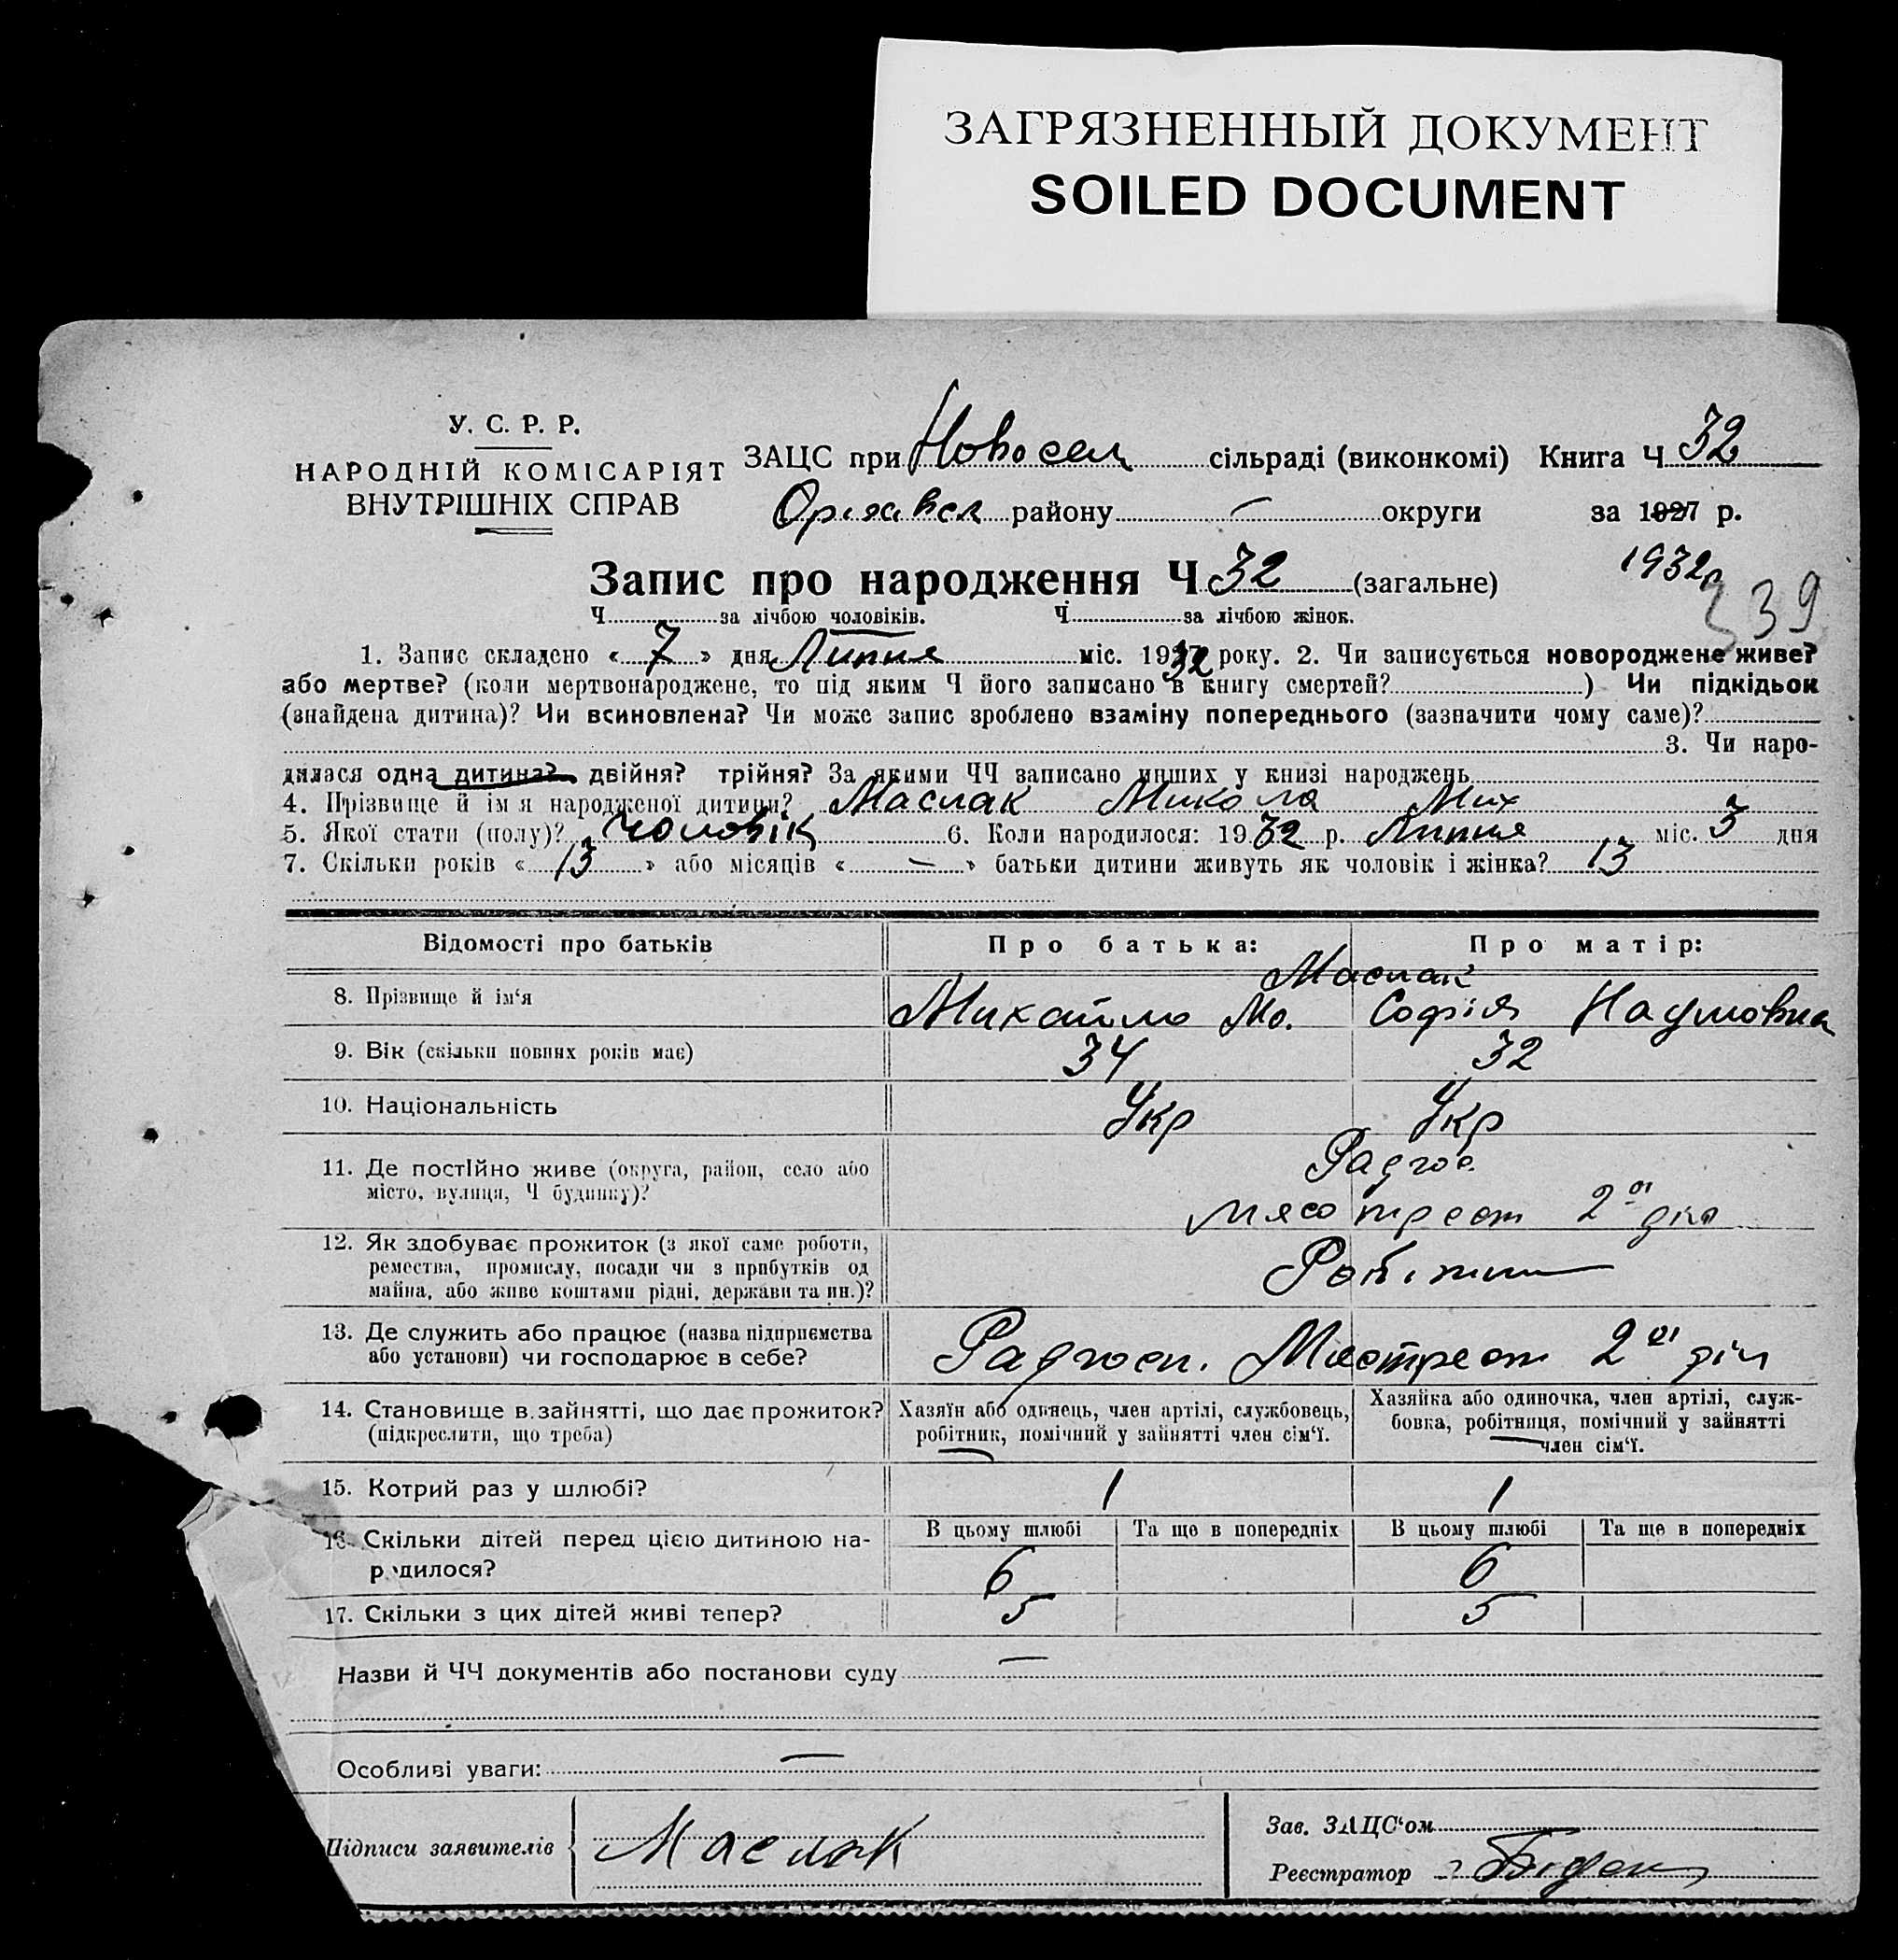 ЗАГРЯЗНЕННЫЙ ДОКУМЕНТ
SOILED DOCUMENT
У. С. Р. Р.
НАРОДНІЙ КОМІСАРІЯТ
ВНУТРІШНІХ СПРАВ
ЗАЦС при Новосел сільраді (виконкомі) Книга Ч 32
району — округи за 1927 р.
1932р
Запис про народження Ч 32 (загальне)
339
Ч за лічбою чоловіків. Ч за лічбою жінок.
1. Запис складено « 7 » дня Липня міс. 1932 року. 2. Чи записується новороджене живе?
або мертве? (коли мертвонароджене, то під яким Ч його записано в книгу смертей? ) Чи підкідьок
(знайдена дитина)? Чи всиновлена? Чи може запис зроблено взаміну попереднього (зазначити чому саме)?
3. Чи наро-
дилася одна дитина? двійня? трійня? За якими ЧЧ записано инших у книзі народжень
4. Прізвище й ім я народженої дитини? Маслак Микола Мих
5. Якої стати (полу)? чоловік 6. Коли народилося: 1932 р. Липня міс. 3 дня
7. Скільки років « 13 » або місяців « — » батьки дитини живуть як чоловік і жінка? 13
Відомості про батьків Про батька: Про матір:
Маслак
8. Прізвище й ім‘я Михайло Мо. Софія Наумовна
9. Вік (скільки повних років має) 34 32
10. Національність Укр Укр
11. Де постІйно живе (округа, район, село або Радгос
місто, вулиця, Ч будинку)? мясотрест 2
12. Як здобуває прожиток (з якої саме роботи,
ремества, промислу, посади чи з прибутків од
майна, або живе коштами рідні, держави та ин.)?
13. Де служить або працює (назва підприємства
або установи) чи господарює в себе? Радгосп. Мястрест 2 діл
14. Становище в зайнятті, що дає прожиток?
(підкреслити, що треба)
Хазяїн або одинець, член артілі, службовець,
робітник, помічний у зайнятті член сім‘ї.
Хазяйка або одиночка, член артілі, служ-
бовка, робітниця, помічний у зайнятті
член сім‘ї.
15. Котрий раз у шлюбі? 1 1
16. Скільки дітей перед цією дитиною на-
родилося?
В цьому шлюбі Та ще в попередніх В цьому шлюбі Та ще в попередніх
6 6
17. Скільки з цих дітей живі тепер? 5 5
Назви й ЧЧ документів або постанови суду —
Особливі уваги: —
Підписи заявителів Маслак
Зав. ЗАЦС‘ом
Реєстратор